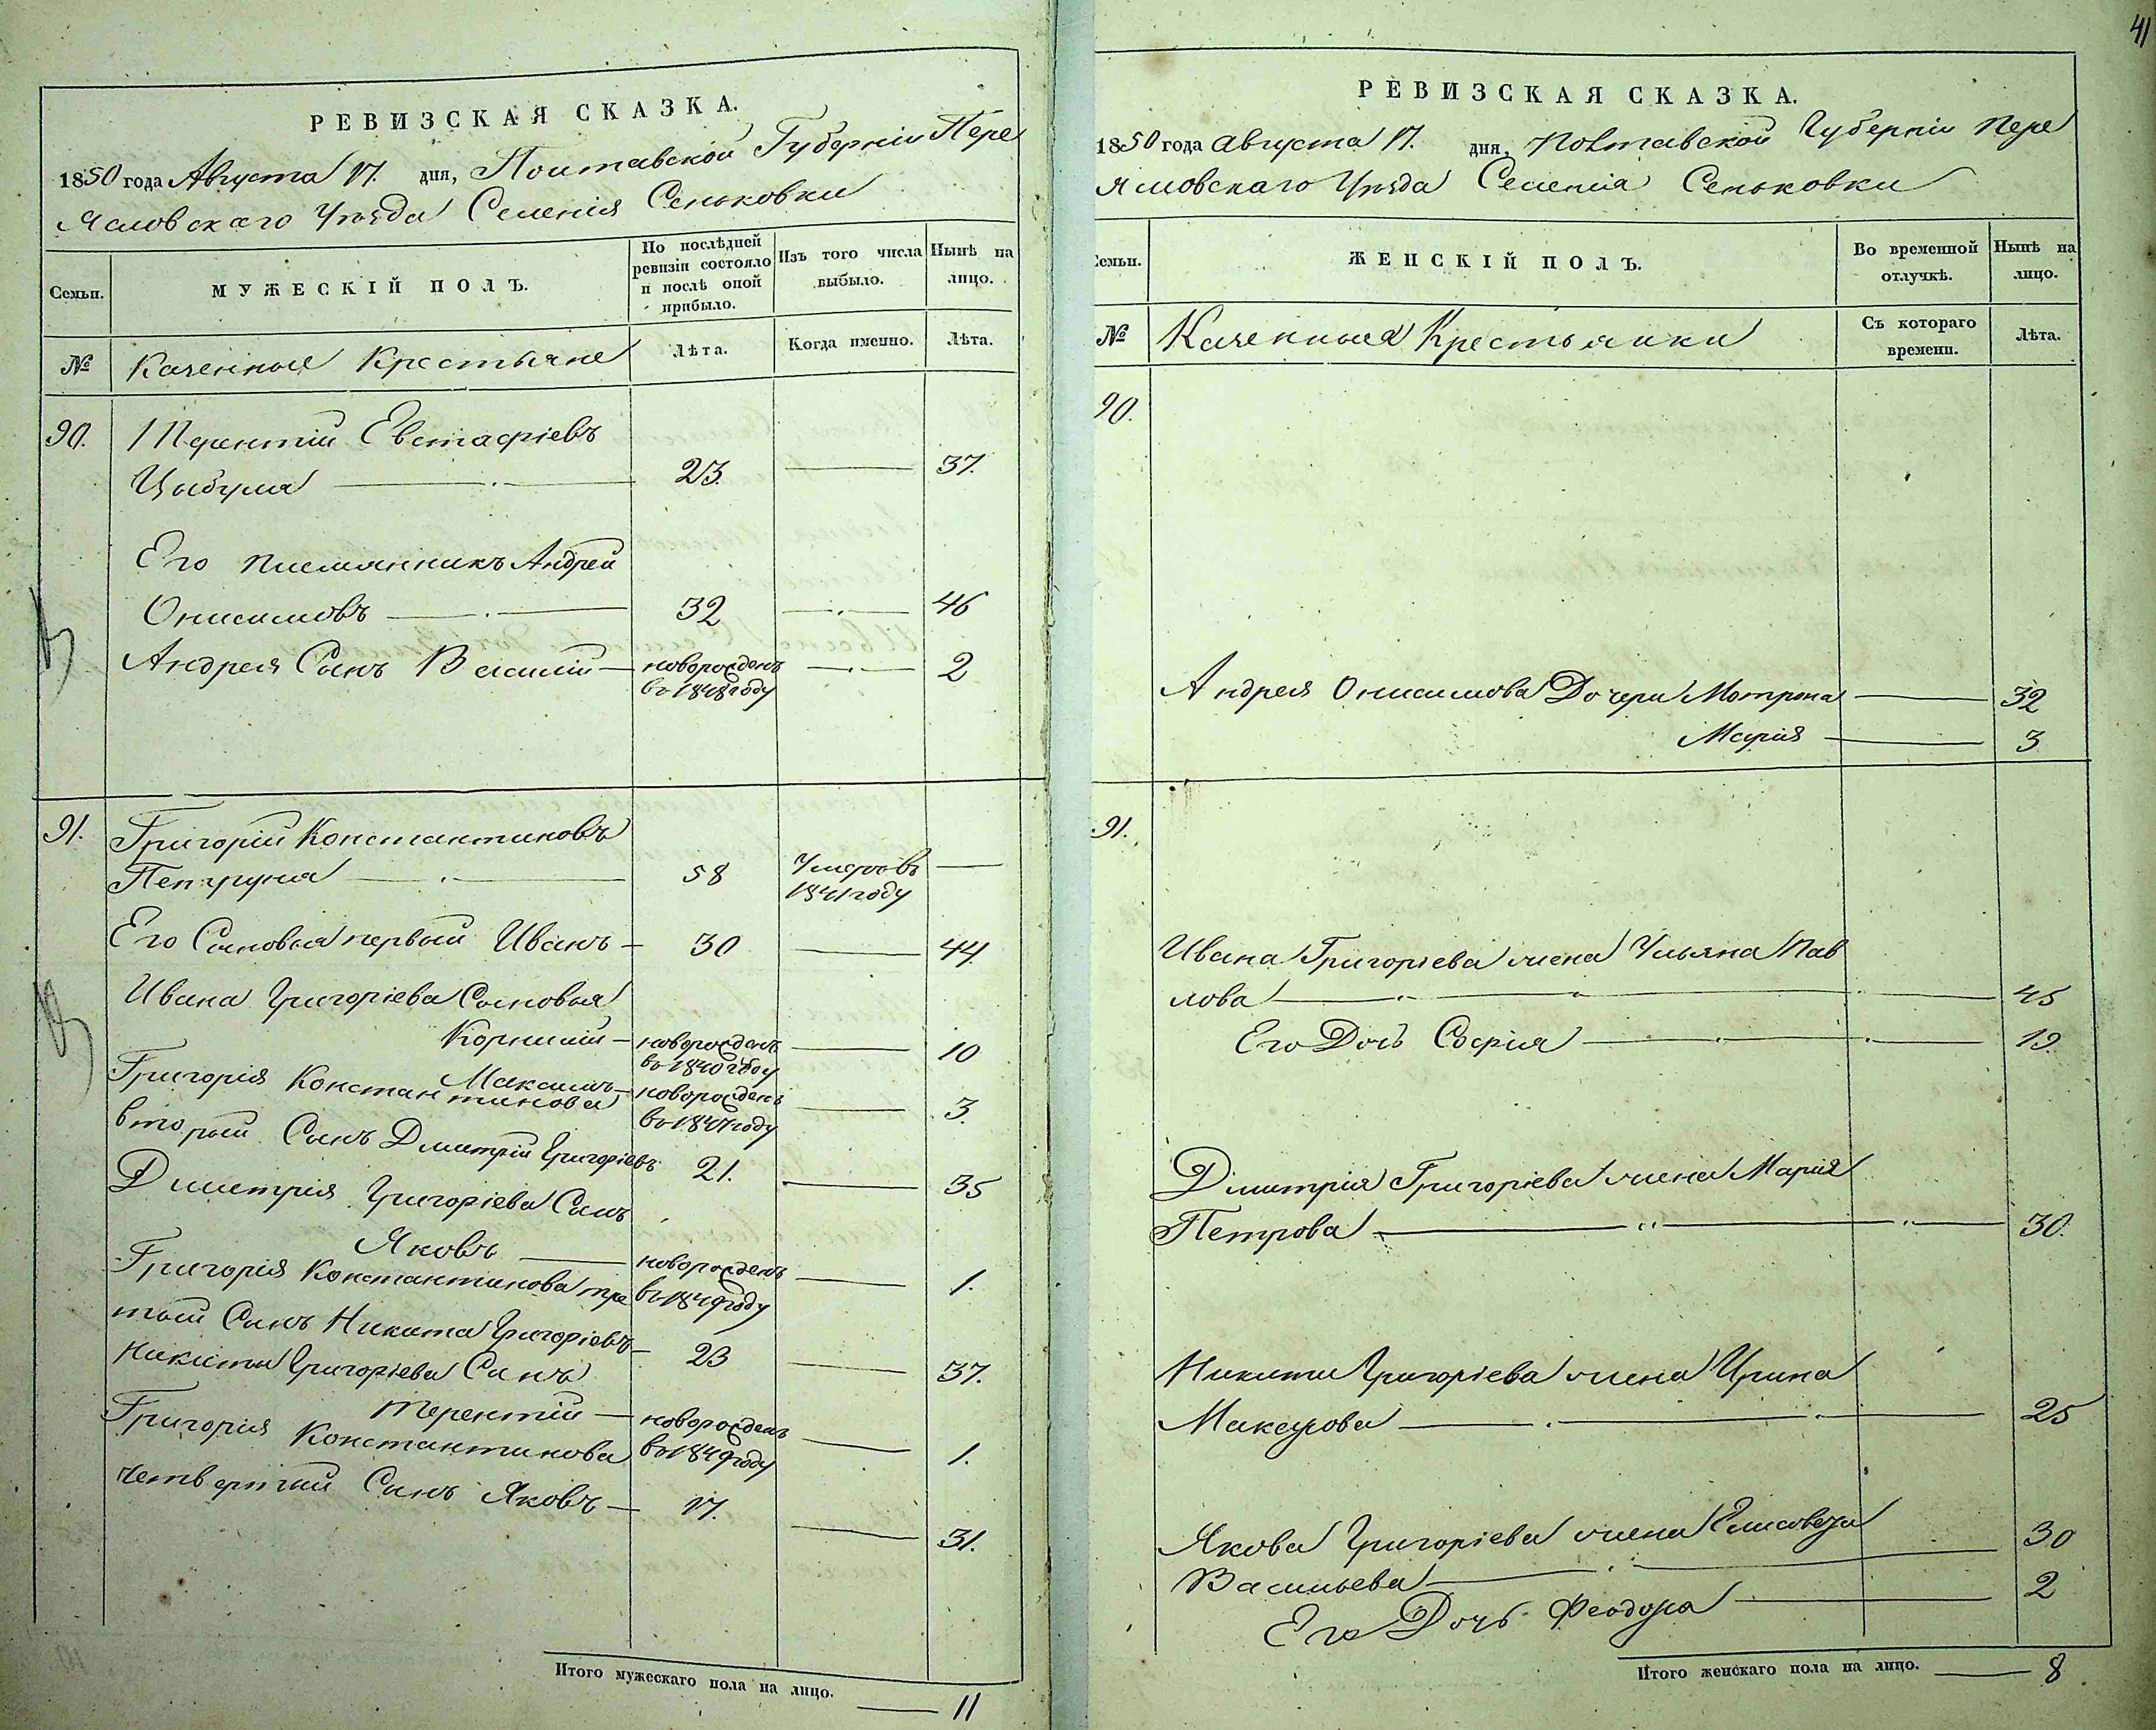 41
РЕВИЗСКАЯ СКАЗКА.
1850 года Августа 17. дня, Полтавской Губерніи Пере
Яславскаго Уѣзда Селенія Сеньковки
Семьи.
МУЖЕСКІЙ ПОЛЪ.
По послѣдней ревизіи состояло и послѣ оной прибыло.
Изъ того числа выбыло.
Нынѣ на лицо.
№ Казенные Крестьяне
Лѣта.
Когда именно.
Лѣта.
90. Терентій Евстафіевъ
Цыбуля 23. 37.
Его племянникъ Андрей
Онисимовъ 32 46
Андрея Сынъ Василій новорожденъ 2
въ 1848 году
91. Григорій Константиновъ
Петруня 58 Умеръ въ
1841 году
Его Сыновья первый Иванъ 30 44.
Ивана Григоріева Сыновья
Корнилій новорожденъ 10
въ 1840 году
Максимъ новорожденъ 3.
въ 1847 году
Григорія Константинова
вторый Сынъ Дмитрій Григоріевъ 21. 35
Дмитрія Григоріева Сынъ
Яковъ новорожденъ 1.
въ 1849 году
Григорія Константинова тре
тый Сынъ Никита Григоріевъ 23 37.
Никиты Григоріева Сынъ
Терентій новорожденъ 1.
въ 1849 году
Григорія Константинова
четвертый Сынъ Яковъ 17. 31.
Итого мужескаго пола на лицо. 11
РЕВИЗСКАЯ СКАЗКА.
1850 года Августа 17. дня, Полтавской Губерніи Пере
Яславскаго Уѣзда Селенія Сеньковки
Семьи.
ЖЕНСКІЙ ПОЛЪ.
Во временной отлучкѣ.
Нынѣ на лицо.
№ Казенныя Крестьянки
Съ котораго времени.
Лѣта.
90.
Андрея Онисимова Дочери Мотрона 32
Марія 3
91.
Ивана Григоріева жена Ульяна Пав
лова 45
Его Дочь Софія 19.
Дмитрія Григоріева жена Марія
Петрова 30.
Никиты Григоріева жена Ирина
Макарова 25
Якова Григоріева жена Елисовета
Васильева 30
Его Дочь Феодора 2
Итого женскаго пола на лицо. 8